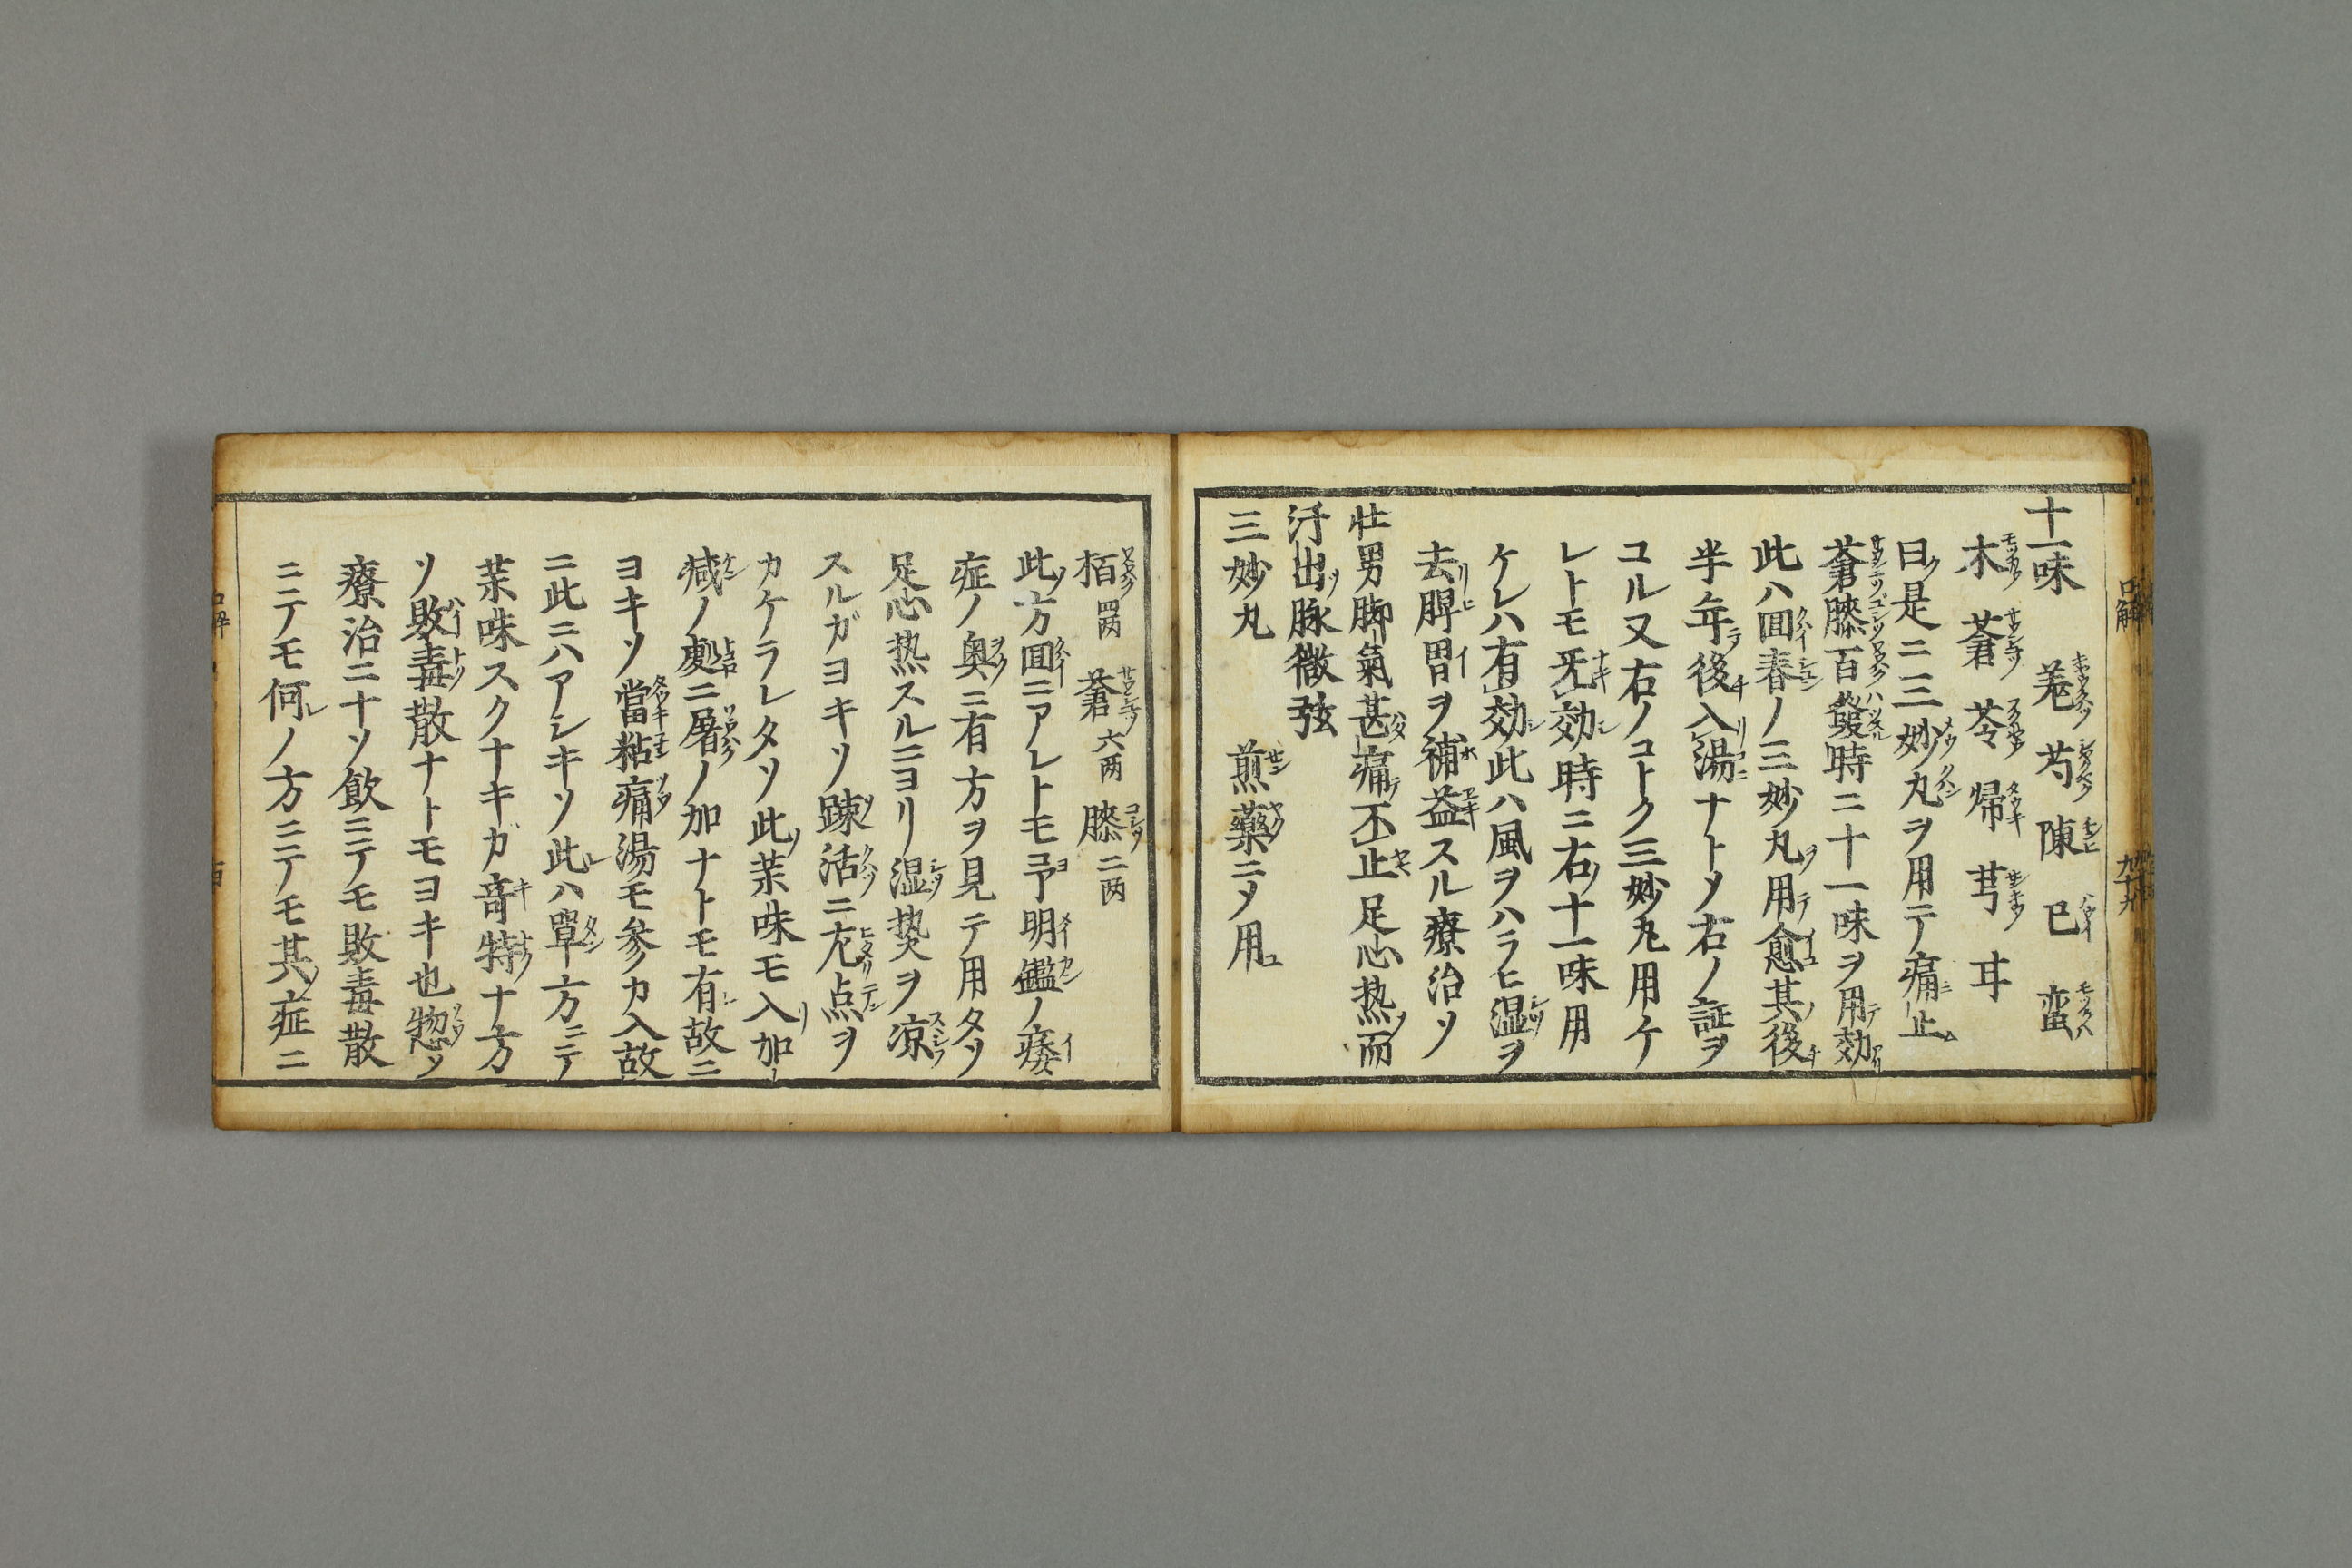 十一味　羗　芍　陳　已　蛮
木　蒼　苓　帰　芎　耳
曰是ニ三妙丸ヲ用テ痛止
蒼膝百發時ニ十一味ヲ用効
此ハ回春ノ三妙丸用愈其後
半年後入湯ナトメ右ノ証ヲ
コル又右ノコトク三妙丸用ケ
レトモ旡効時ニ右十一味用
ケレハ有効此ハ風ヲハラヒ湿ヲ
去脾胃ヲ補益スル療治ソ
壮男脚氣甚痛不止足心热而
汗出脉微弦
三妙丸　煎藥ニメ用
栢四两　蒼六两　膝二两
此方回ニアレトモ予明鑑ノ痿
症ノ奥ニ有方ヲ見テ用タソ
足心热スルニヨリ湿热ヲ凉
スルガヨキソ踈活ニ左点ヲ
カケラレタソ此茉味モ入加
减ノ處ニ屠ノ加ナトモ有故ニ
ヨキソ當粘痛湯モ参カ入故
ニ此ニハアシキソ此ハ單方ニテ
茉味スクナキガ竒特ナ方
ソ敗毒散ナトモヨキ也惣メ
療治ニナソ飲ニテモ敗毒散
ニテモ何ノ方ニテモ其症ニ
口解
九十九